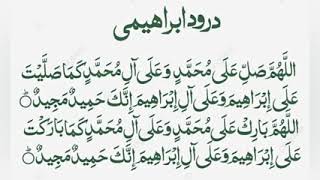 درود ابراھیمی
اَللّٰهُمَّ صَلِّ عَلَى مُحَمَّدٍ وَعَلَى آلِ مُحَمَّدٍ كَمَا صَلَّيْتَ
عَلَى إِبْرَاهِيمَ وَعَلَى آلِ إِبْرَاهِيمَ إِنَّكَ حَمِيدٌ مَجِيدٌ
اَللّٰهُمَّ بَارِكْ عَلَى مُحَمَّدٍ وَعَلَى آلِ مُحَمَّدٍ كَمَا بَارَكْتَ
عَلَى إِبْرَاهِيمَ وَعَلَى آلِ إِبْرَاهِيمَ إِنَّكَ حَمِيدٌ مَجِيدٌ